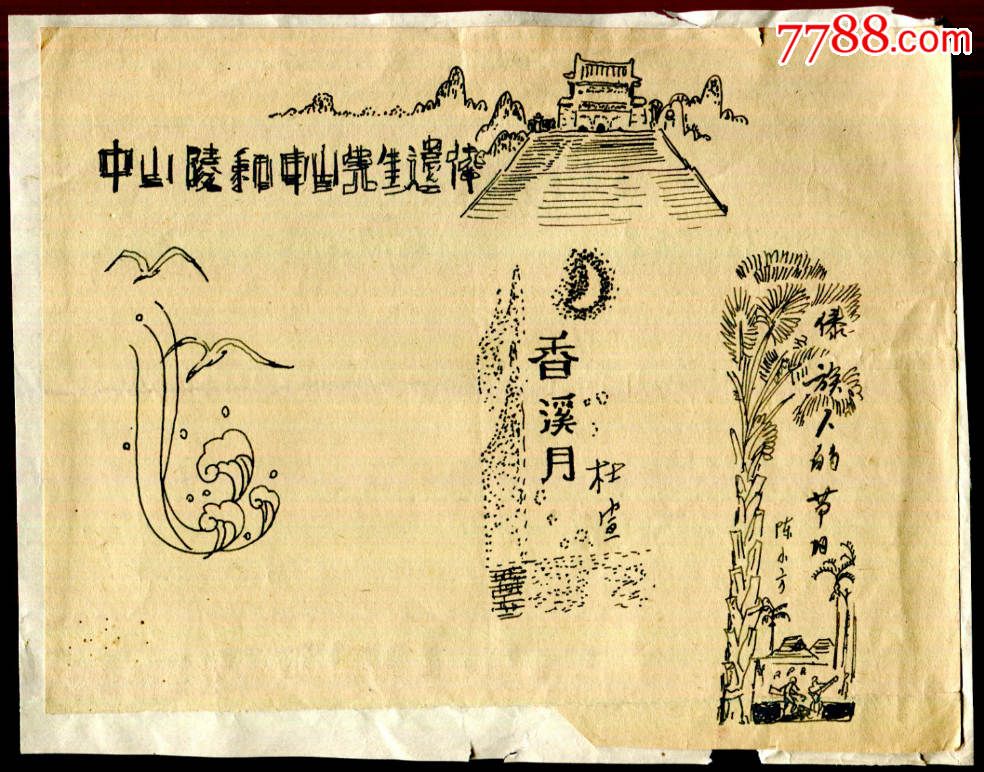 7788.com
中山陵和中山先生遺体
香溪月
杜宣
傣族人的节日
陈小方